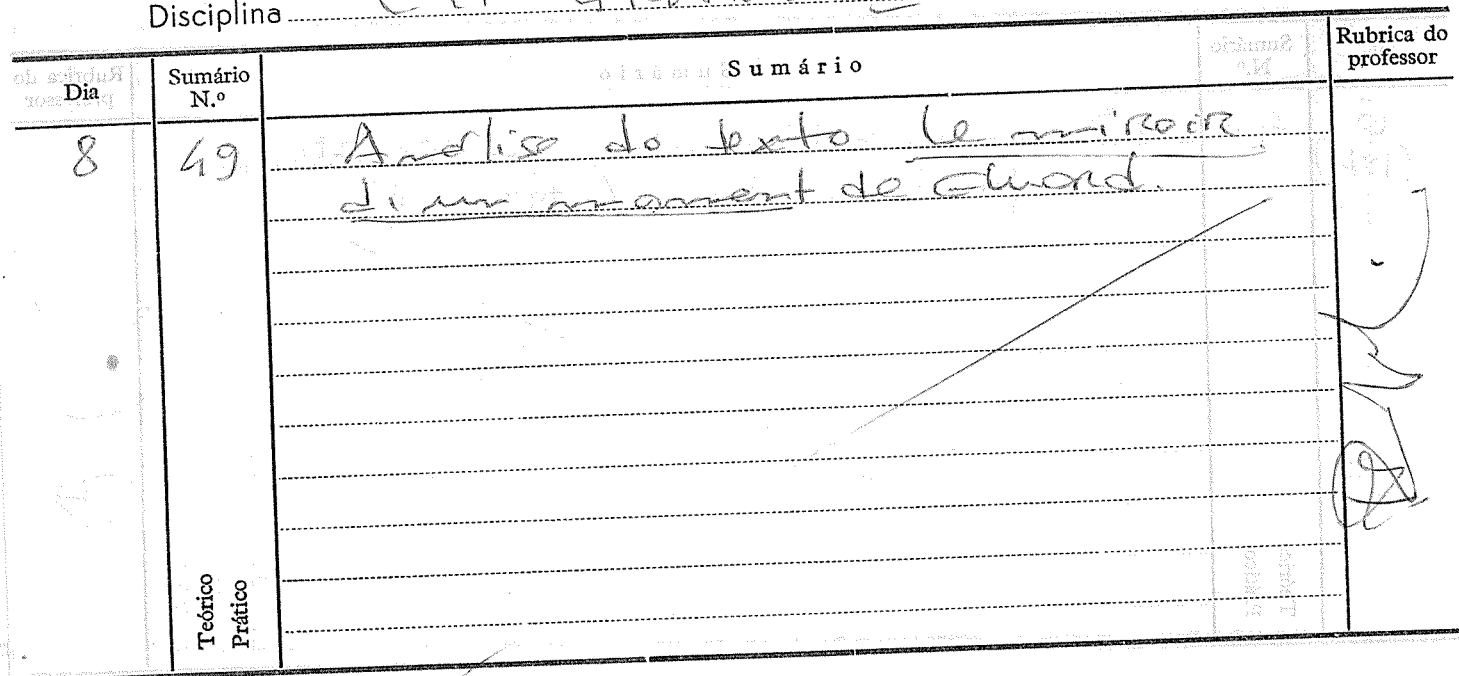 Disciplina
Dia
Sumário N.º
Sumário
Rubrica do professor
8
49
Análise do texto Le miroir
d'un moment de Eluard.
Teórico
Prático